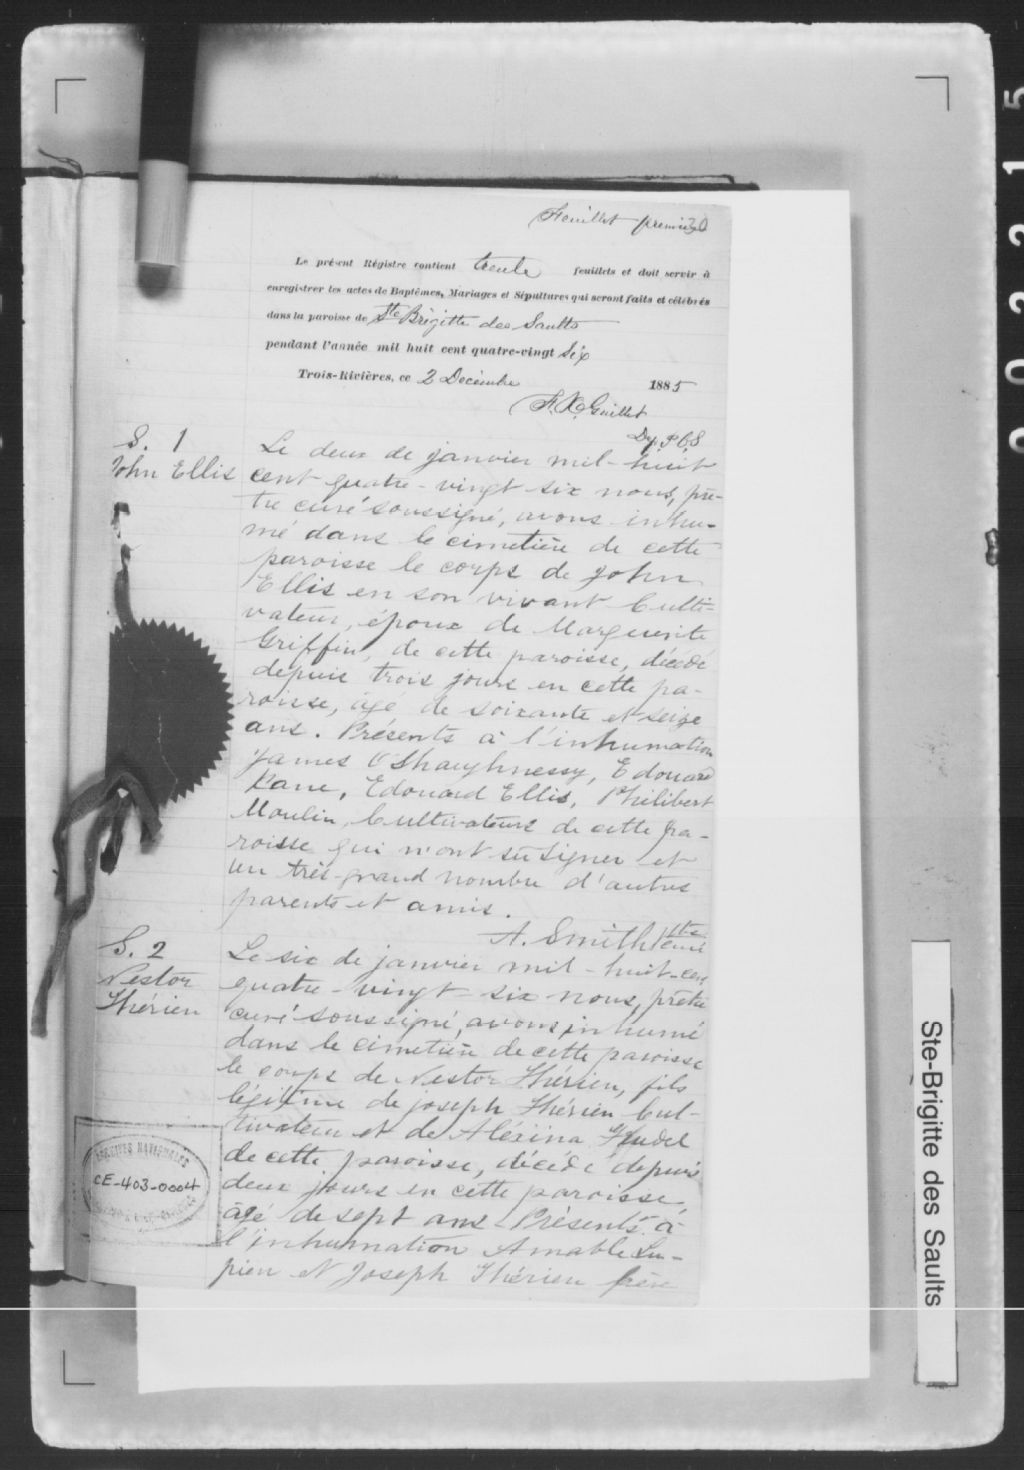 Feuillet premier 30
Le présent Régistre contient trente feuillets et doit servir à
enregistrer les actes de Baptêmes, Mariages et Sépultures qui seront faits et célébrés
dans la paroisse de Ste Brigitte des Saults
pendant l'année mil huit cent quatre-vingt Six
Trois-Rivières, ce 2 Decembre 1885
F. X. Guillet
Dy. P. C. S
S. 1
John Ellis
Le deux de janvier mil-huit
cent quatre-vingt six nous, prê-
tre curé soussigné, avons inhu-
mé dans le cimetière de cette
paroisse le corps de John
Ellis en son vivant Culti-
vateur, époux de Marguerite
Griffin, de cette paroisse, décédé
depuis trois jours en cette pa-
roisse, âgé de soixante et seize
ans. Présents à l'inhumation
James O'Shaughnessy, Edouard
Kane, Edouard Ellis, Philibert
Moulin, Cultivateurs de cette pa-
roisse qui n'ont su signer et
un très-grand nombre d'autres
parents et amis.
A. Smith Ptre
curé
S. 2
Nestor
Thérien
Le six de janvier mil-huit-cent
quatre-vingt-six nous, prêtre
curé soussigné, avons inhumé
dans le cimetière de cette paroisse
le corps de Nestor Thérien, fils
légitime de joseph Thérien Cul-
tivateur et de Aléxina
de cette paroisse, décédé depuis
deux jours en cette paroisse
âgé de sept ans. Présents à
l'inhumation Amable Lu-
pien et Joseph Thérien frère
ARCHIVES NATIONALES
CE-403-0004
Ste-Brigitte des Saults
0 0 2 2 1 5